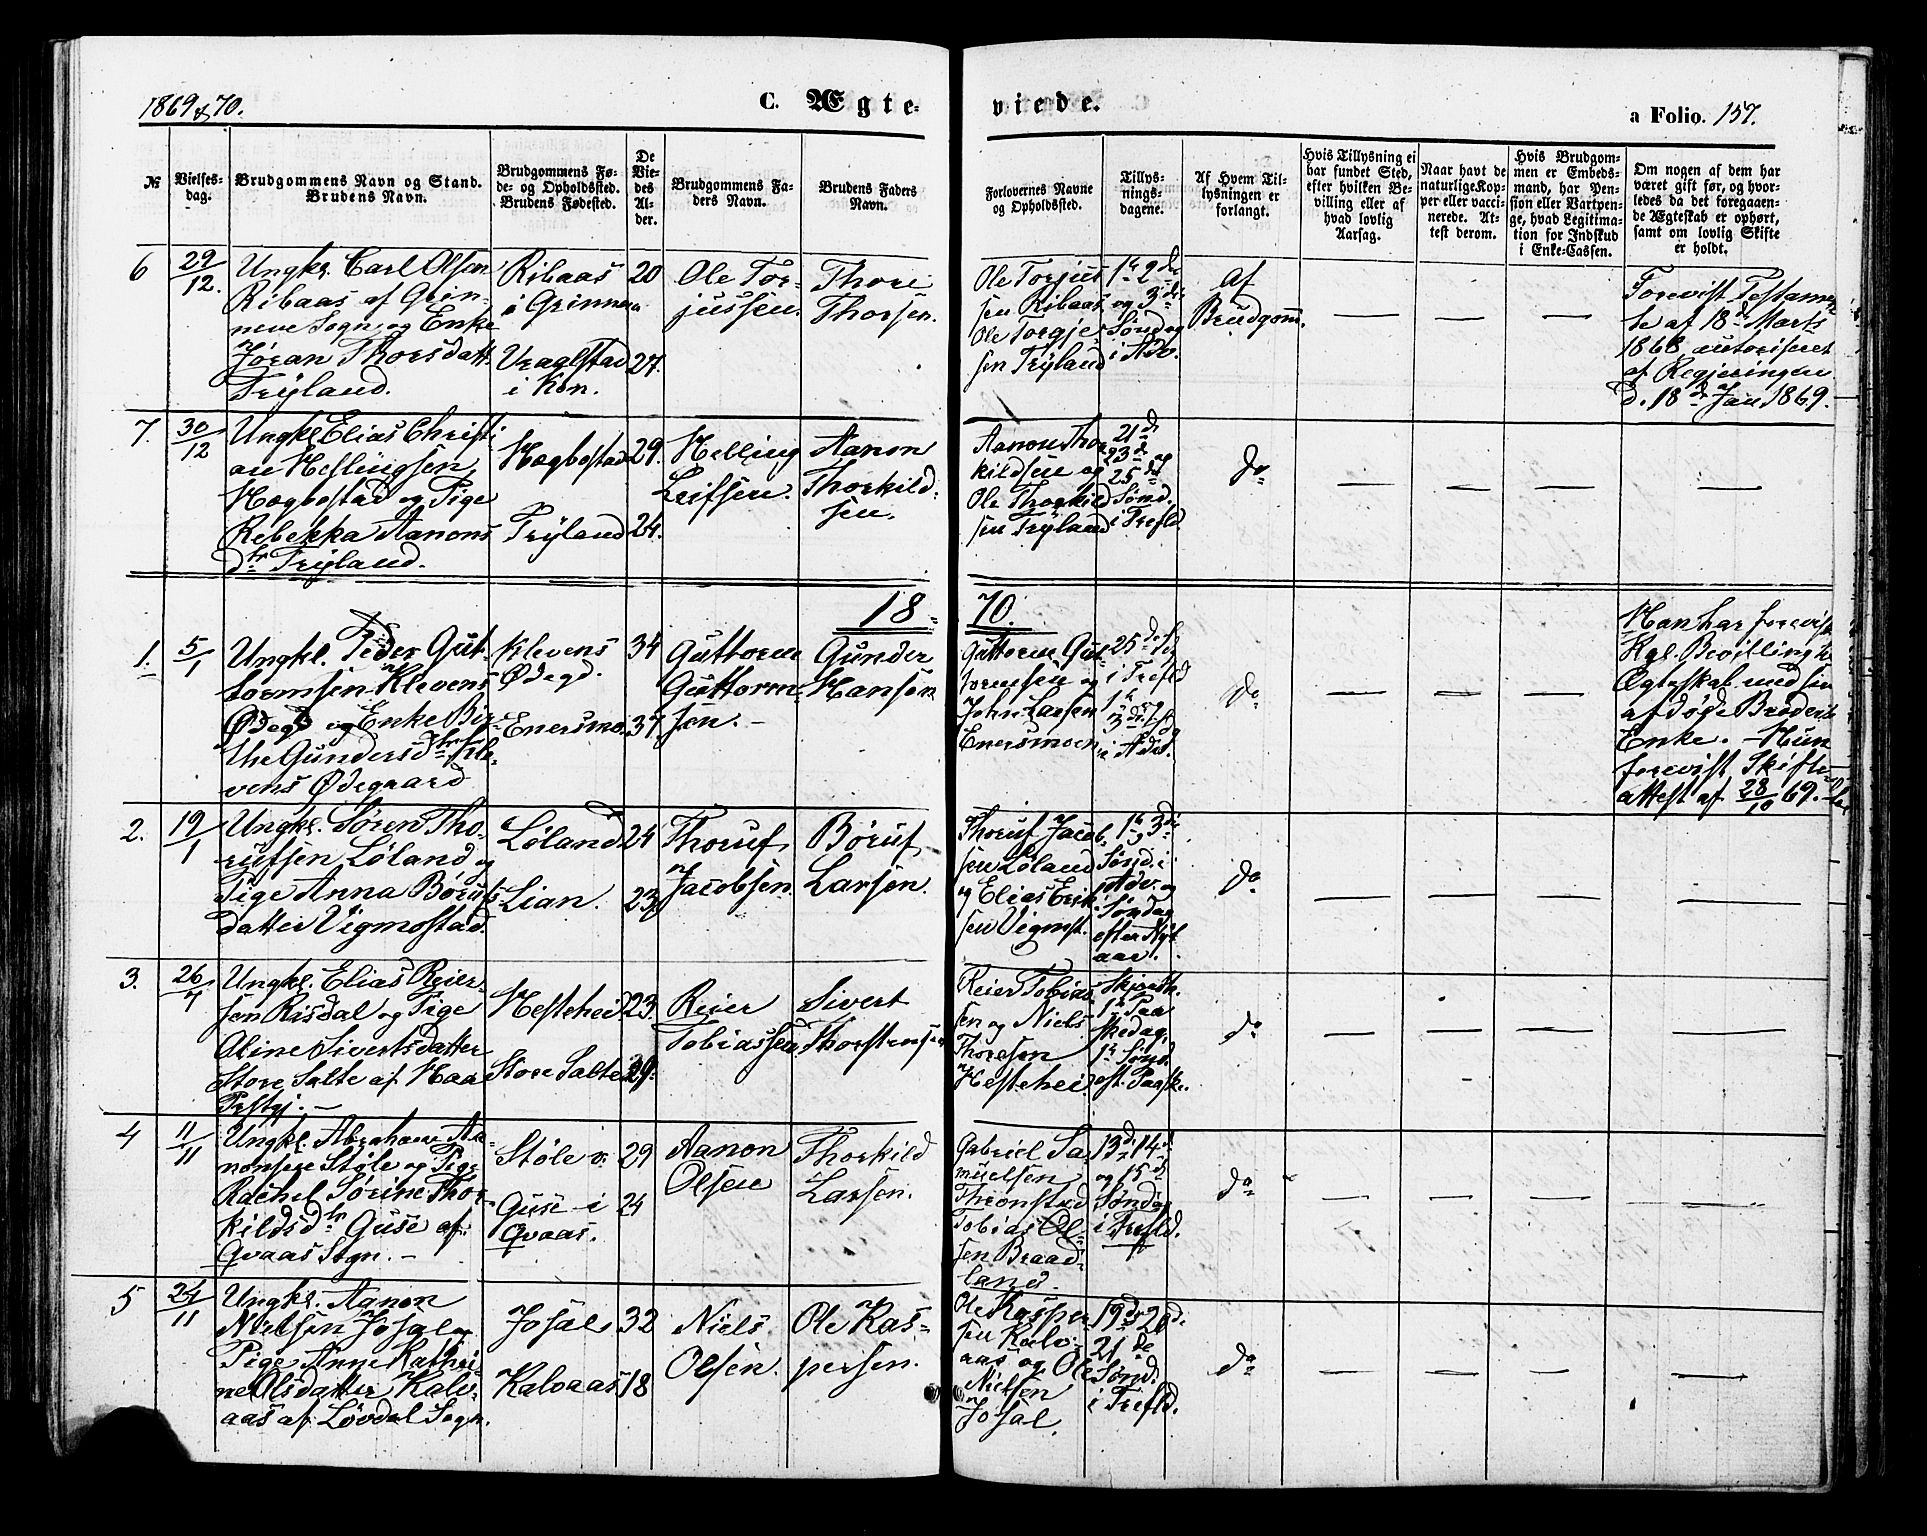 1869 & 70.
C. Ægte-
viede.
a Folio. 157.
№
Vielses-
dag.
Brudgommens Navn og Stand.
Brudens Navn.
Brudgommens Fø-
de- og Opholdssted.
Brudens Fødested.
De
Vie-
des
Al-
der.
Brudgommens Fa-
ders Navn.
Brudens Faders
Navn.
Forlovernes Navne
og Opholdssted.
Tillys-
nings-
dagene.
Af Hvem Til-
lysningen er
forlangt.
Hvis Tillysning ei
har fundet Sted,
efter hvilken Be-
villing eller af
hvad lovlig
Aarsag.
Naar havt de
naturlige Kop-
per eller vacci-
nerede. At-
test derom.
Hvis Brudgom-
men er Embeds-
mand, har Pen-
sion eller Vartpen-
ge, hvad Legitima-
tion for Indskud
i Enke-Cassen.
Om nogen af dem har
været gift før, og hvor-
ledes da det foregaaen-
de Ægteskab er ophørt,
samt om lovlig Skifte
er holdt.
6
29/12.
Ungkr. Carl Olsen
Ribaas af Grin-
nene Sogn og Enke
Jøran Thorsdatt.
Trÿland.
Ribaas
i Grinnen
20
i Kon.
27.
Ole Tor-
jussen.
Thore
Thorsen.
Ole Torjus
sen Ribaas
Ole Torgjer
sen Trÿland
1te 2de
og 3die
Søndag
i Adv.
af
Brudgom.
Forevist Testamen
te af 18de Marts
1868 autoriseret
af Regjeringen
d. 18de Jan 1869.
7.
30/12
Ungkl. Elias Christi
an Hellingsen
Hægbostad og Pige
Rebekka Aanons
dtr Trÿland.
Hægbostad
29.
Trÿland
24.
Helling
Leifsen.
Aanon
Thorkild-
sen.
Aanon Thor
kildsen og
Ole Thorkild
sen Trÿland
21de
23de
25de og
Sønd.
i Trefld.
do
18-
70.
1.
5/1
Ungkl. Peder Gut-
tormsen Klevens
Ødegd og Enke Bir-
the Gundersdtr Kle-
vens Ødegaard
Klevens
Ødegd.
34
Enersmo.
37.
Guttorm
Guttorm-
sen. -
Gunder
Hansen
Guttorm Gut-
tormsen og
John Larsen
Enersmoen
25de S.
i Trefld
1te og
3die S.
i Advt.
do
Man har forevist
Kgl. Bevilling til
Ægteskab med sin
afdøde Broders
Enke. - Hun
forevist Skifte-
attest af 28/10 69.
2.
19/1
Ungkl. Søren Tho-
rufsen Løland og
Pige Anna Børufs-
datter Vigmostad.
Løland
24
Lian.
23
Thoruf
Jacobsen.
Børuf
Larsen.
Thoruf Jacob
sen Løland
og Elias Erik-
sen Vigmst.
1te og 3die
Sønd. i
Adv. og
Søndag
efter Nyt
aar.
do
3.
26/4
Ungkl. Elias Reier-
sen Risdal og Pige
Oline Sivertsdatter
Store Salte af Haa
Prstgj. -
Hestehei
23.
Store Salte
29.
Reier
Tobiassen
Sivert
Thorstensen
Reier Tobias
sen og Niels
Thoresen
Hestehei
Skjærth.
1te Paa
skedag,
1te Sønd.
eft. Paaske.
do
4
11/11
Ungkl. Abraham Aa-
nonsen Støle og Pige
Rachel Sørine Thor
kildsdtr Guse af
Qvaas Sogn. -
Støle
29
Guse i
Qvaas.
24
Aanon
Olsen
Thorkild
Larsen.
Gabriel Sa
muelsen
Thronstad
Tobias Ol-
sen Braad-
land.
13de 14de
og 15de
Søndag
i Trefld.
do
5
24/11
Ungkl. Aanon
Nielsen Josal og
Pige Anne Kathri
ne Olsdatter Kalv-
aas af Løvdal Sogn.
Josal
32
Kalvaas
18
Niels
Olsen.
Ole Kas-
persen.
Ole Kasper
sen Kalv-
aas og Ole
Nielsen
Josal.
19de 20de.
21de
Sønd.
i Trefld.
do